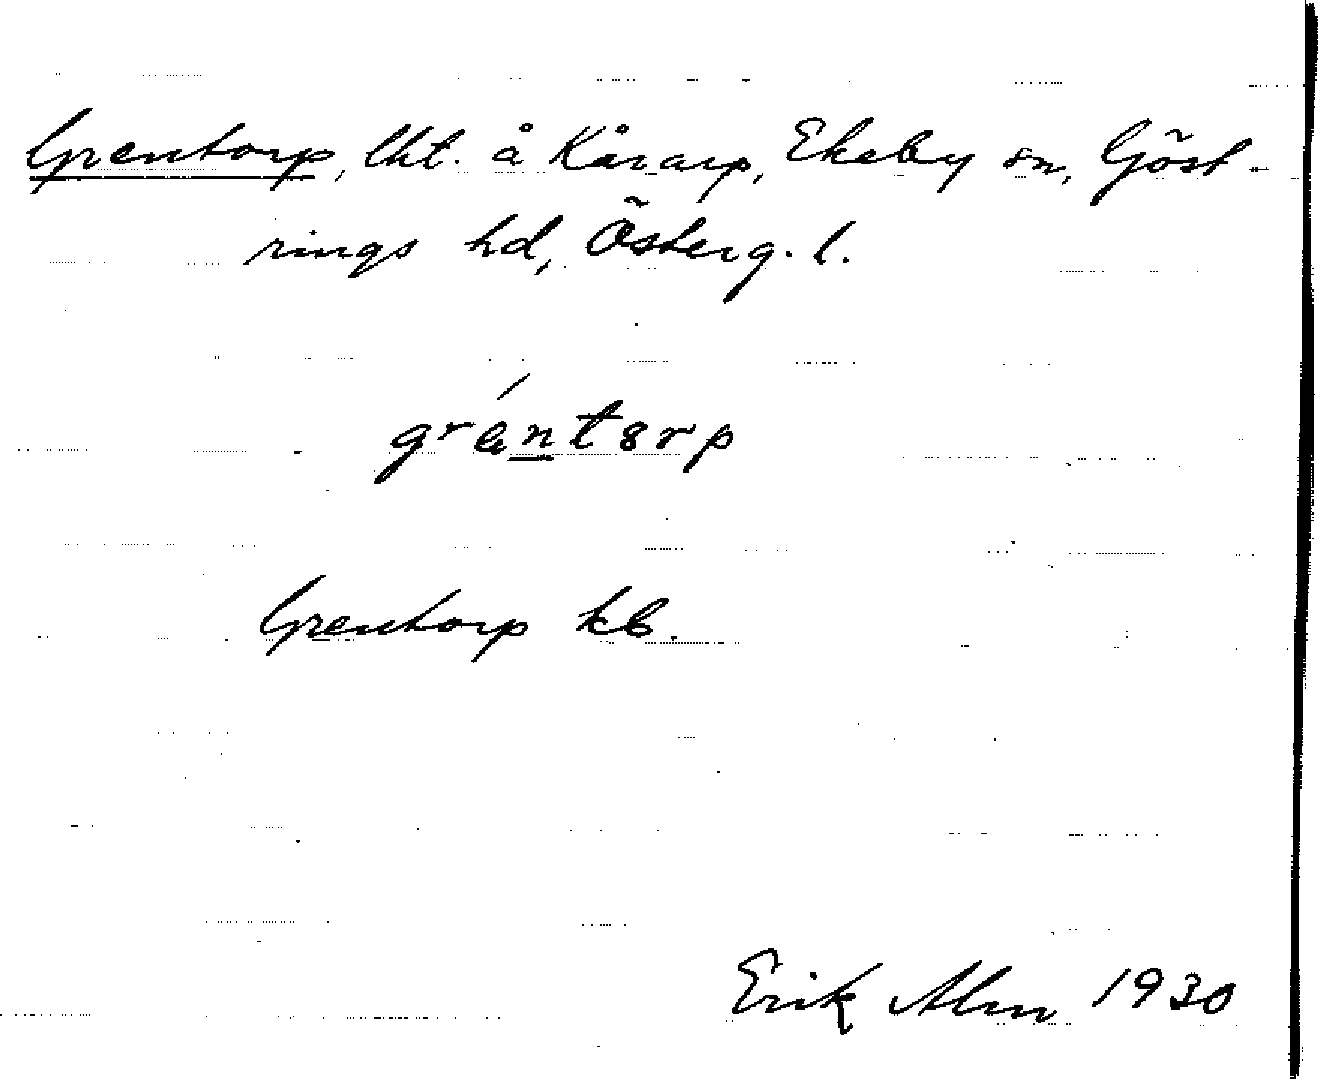 Grentorp, lht. å Kårarp, Ekeby sn, Göst-
rings hd, Österg. l.
Grentorp kb.
Erik Alm 1930